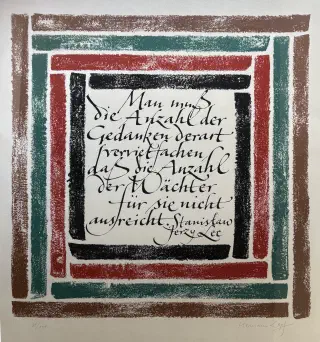 Man muß
die Anzahl der
Gedanken derart
vervielfachen,
daß die Anzahl
der Wächter
für sie nicht
ausreicht. Stanisław
Jerzy Lec